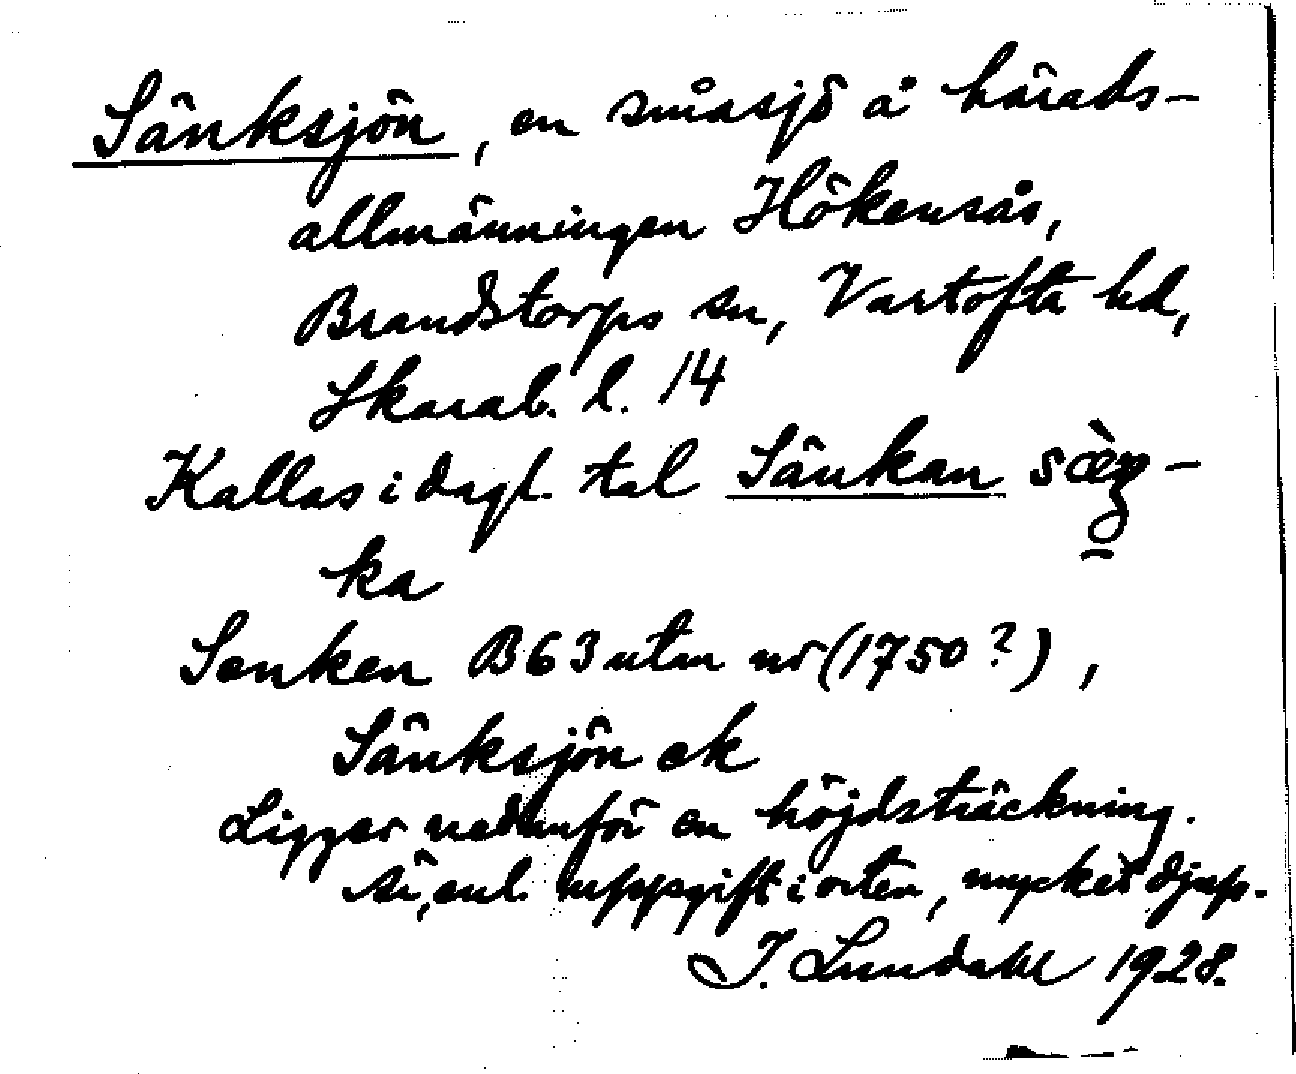 Sänksjön, en småsjö å härads-
allmänningen Hökensås,
Brandstorps sn, Vartofta hd,
Skarab. l. 14
Kallas i dagl. tal Sänkan sæ̀ŋ-
ka
Senken B63 utan nr (1750?),
Sänksjön ek
Ligger nedanför en höjdsträckning.
Är, enl. uppgift i orten, mycket djup.
I. Lundahl 1928.